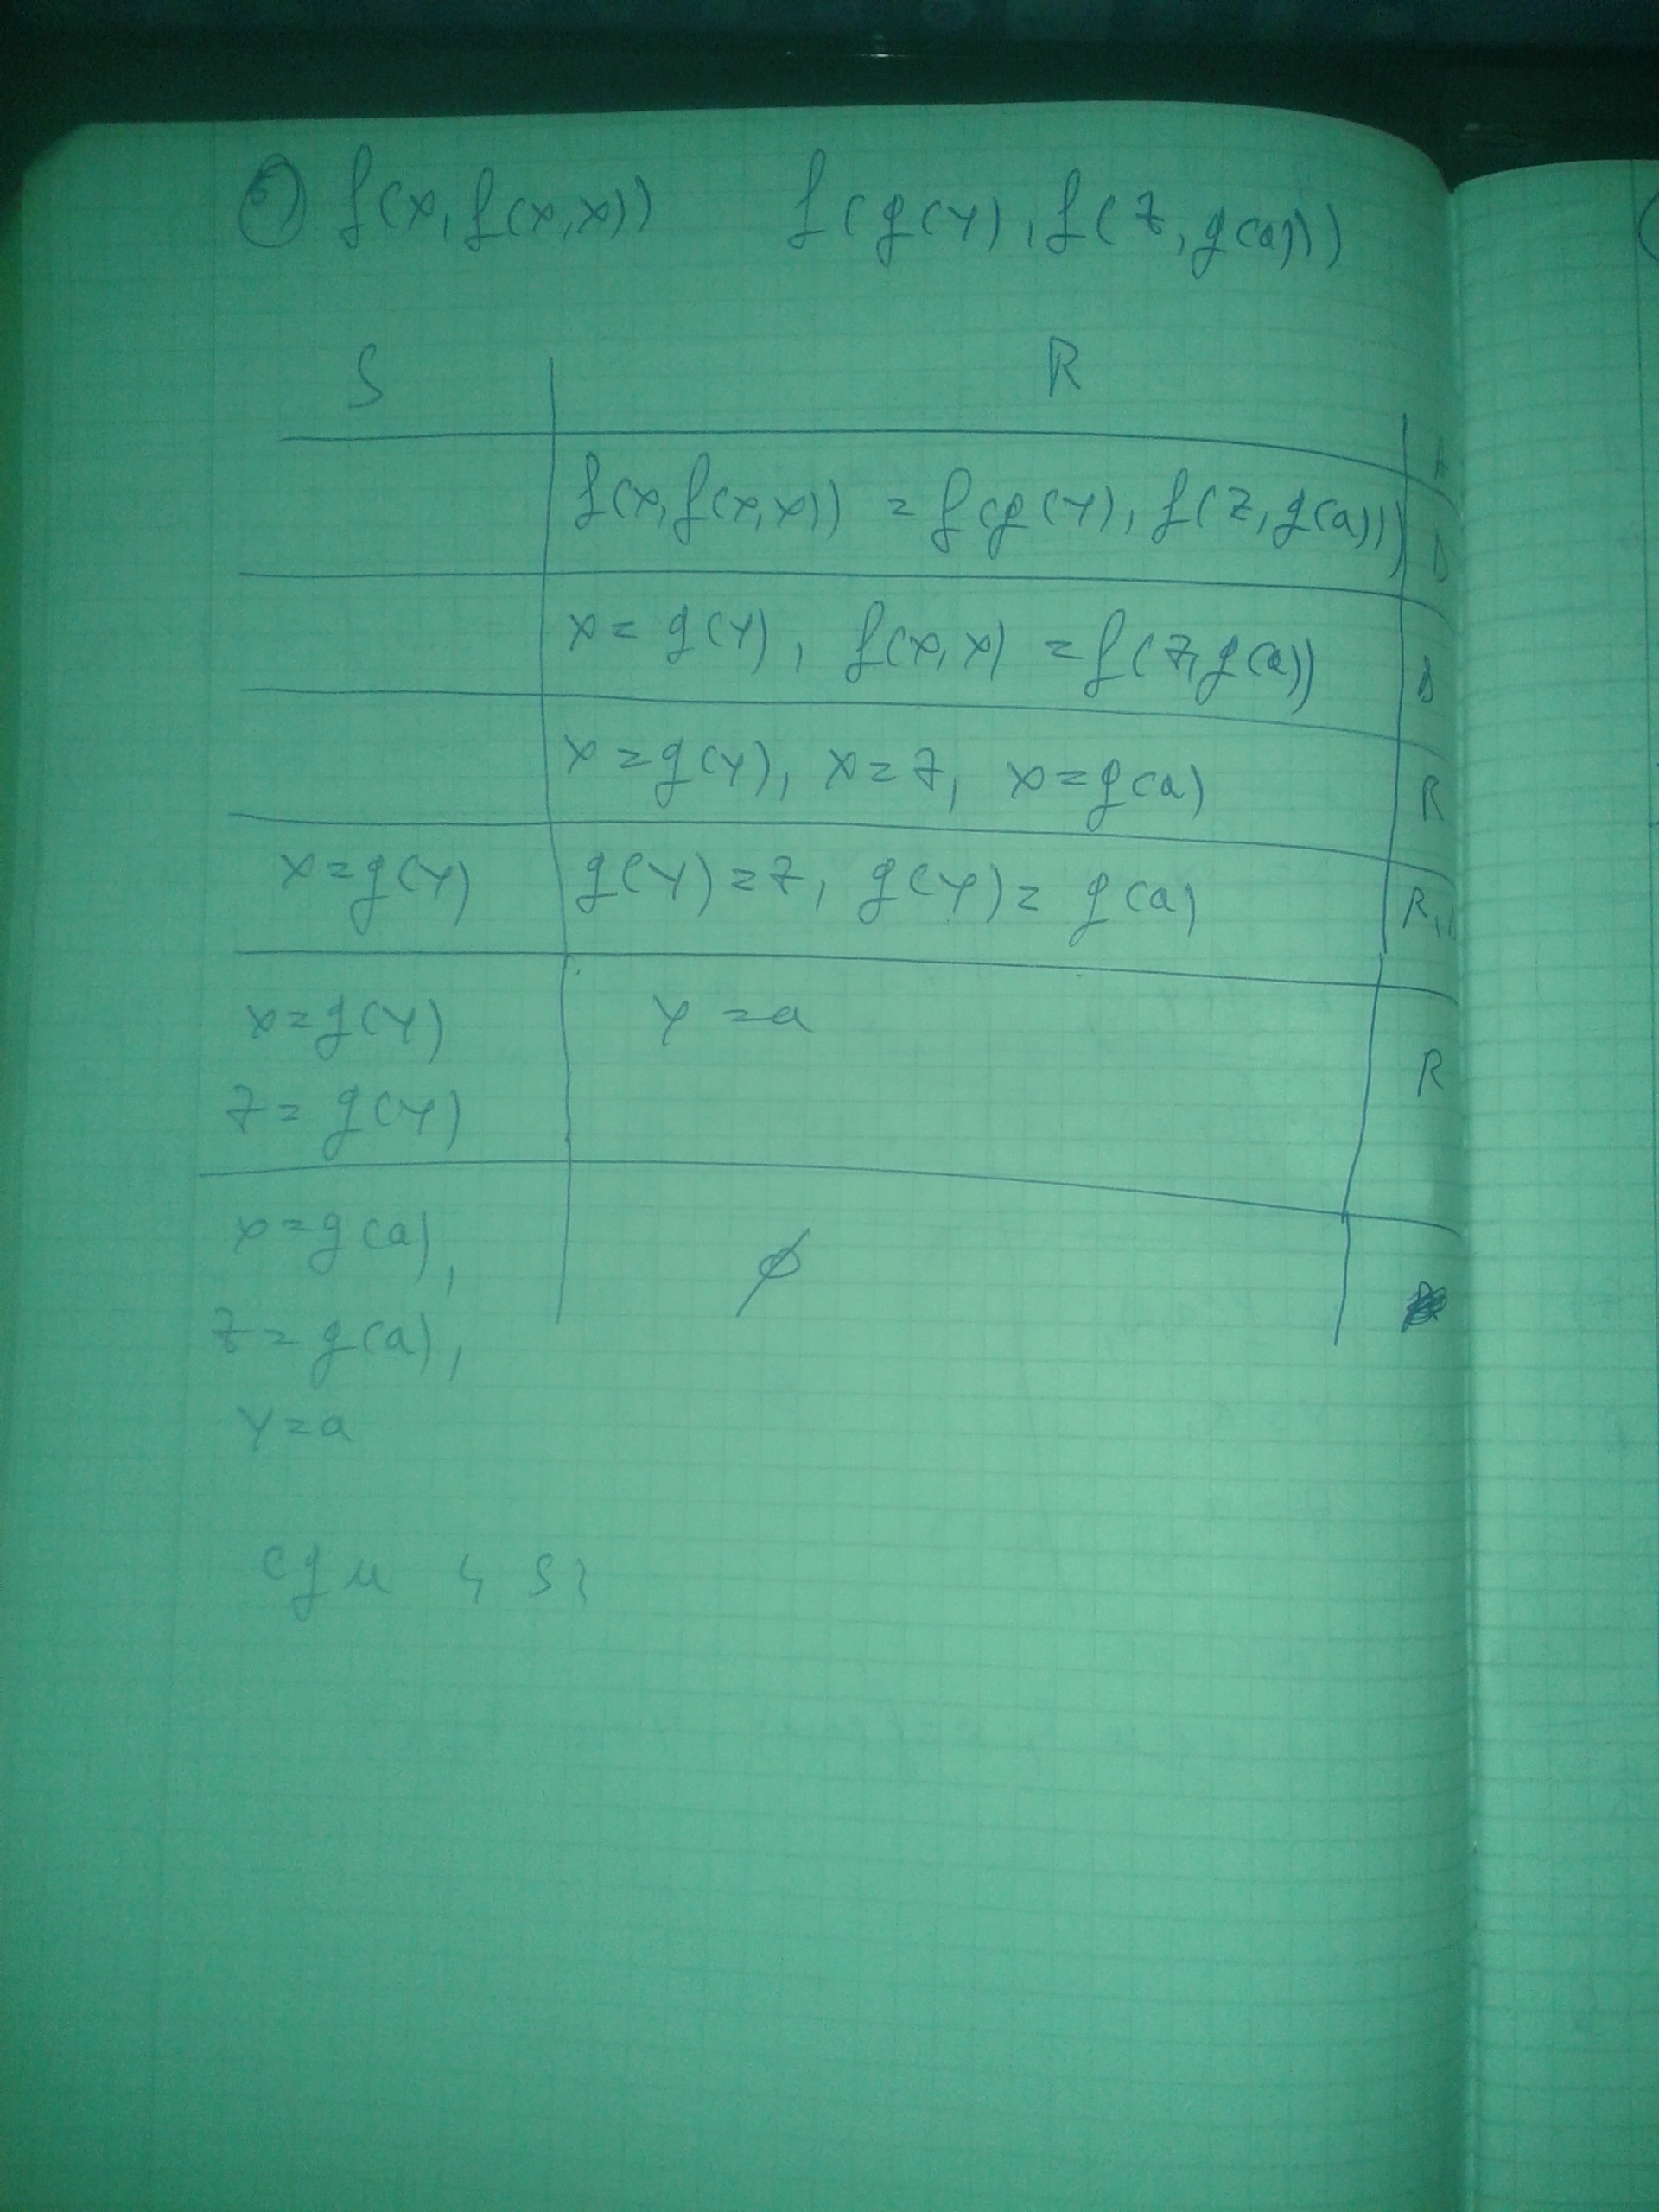 f(x, f(x,x)) f(g(y), f(z, g(a)))
S R
f(x, f(x,x)) = f(g(y), f(z, g(a))) D
x = g(y), f(x,x) = f(z, g(a)) D
x = g(y), x = z, x = g(a) R
x = g(y) g(y) = z, g(y) = g(a)
x = g(y) y = a
z = g(y) R
x = g(a), ∅
z = g(a),
y = a